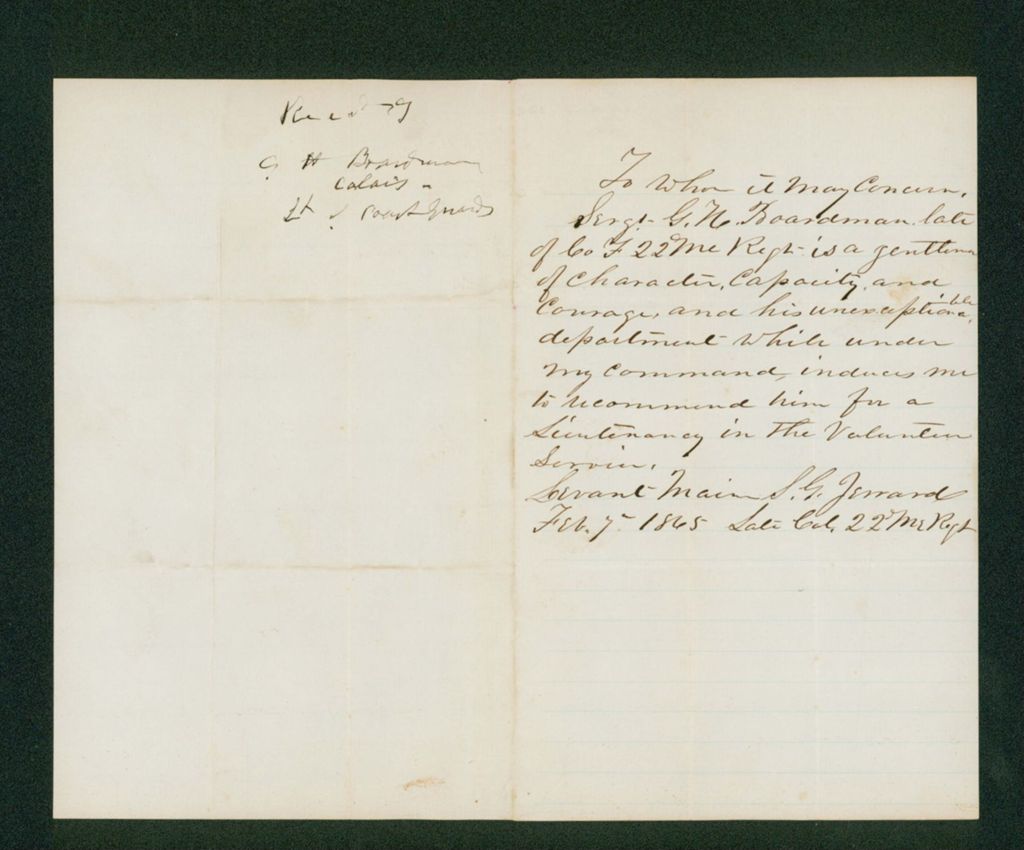 G H Boardman
Calais -
Lt of Coast Guards
To Whom it May Concern,
Sergt G. H. Boardman late
of Co F 22d Me Regt is a gentleman
of Character, Capacity, and
Courage, and his unexceptionable
department while under
my command, induces me
to recommend him for a
Lieutenancy in the Volunteer
Service.
Levant Maine S. G. Jerrard
Feb. 7th 1865 Late Col. 22d Me Regt